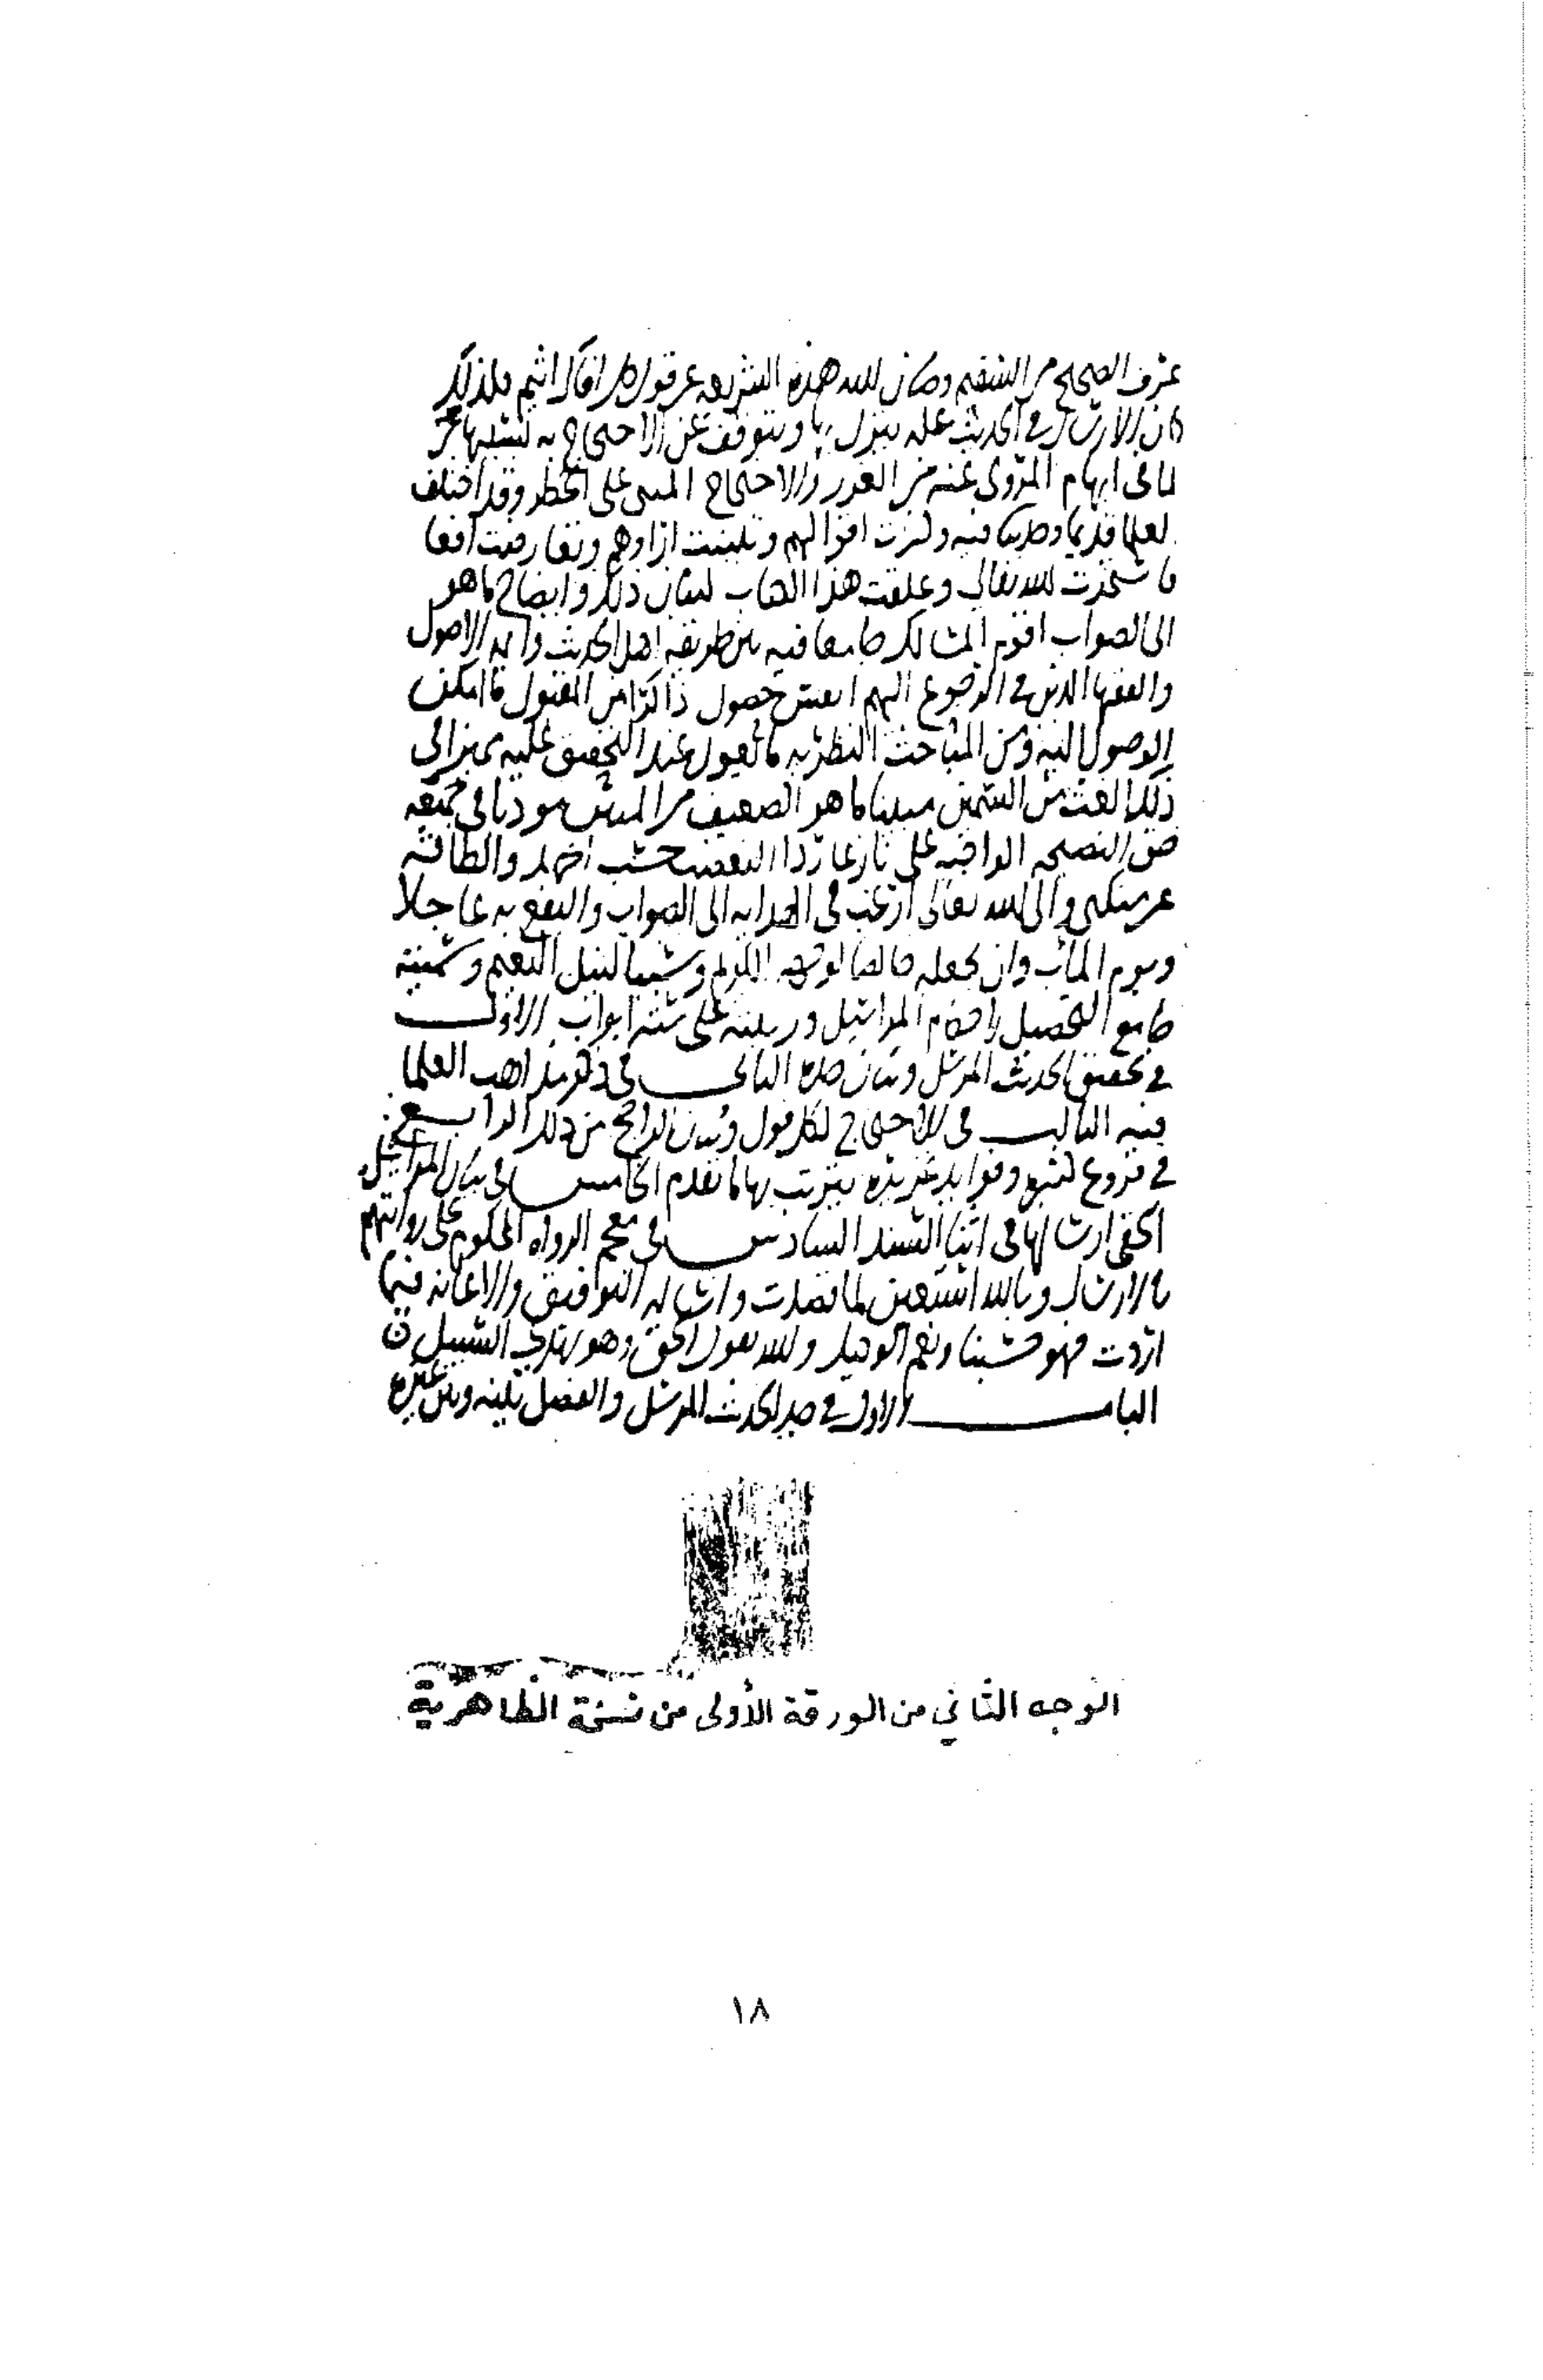 عرف الصحيح من السقيم وصان الله هذه الشريعة عن قول كل افاك اثيم فلذلك
كان الارسال في الحديث علة يترك بها ويتوقف عن الاحتجاج به بسببها
لما في ابهام المروي عنه من الغرر والاحتجاج المبني على الخطر وقد اختلف
العلما قديما وحديثا فيه وكثرت اقوالهم وتباينت اراوهم وتعارضت
فاستخرت الله تعالى وعلقت هذا الكتاب لبيان ذلك وايضاح ما هو
الى الصواب اقوم المسالك جامعا فيه بين طريقة اهل الحديث وايمة الاصول
والفقها الذين في الرجوع اليهم حصول ذاكرا من المنقول ما امكن
الوصول اليه ومن المباحث النظرية ما يعول عند التحقيق عليه مميزا في
ذلك الغث من السمين مبينا ما هو الضعيف من المتين موديا في جميعه
حق النصيحة الواجبة على تاركا ردا التعصب حسب الجهد والطاقة
عن منكبي والى الله تعالى ارغب في الهداية الى الصواب والنفع به عاجلا
ويوم الماب وان يجعله خالصا لوجهه الكريم وسببا لنيل النعيم وسميته
جامع التحصيل لاحكام المراسيل ورتبته على ستة ابواب الاول
في تحقيق الحديث المرسل وبيان حده الثاني في ذكر مذاهب العلما
فيه الثالث في الاحتجاج لكل قول وبيان الراجح من ذلك الرابع
في فروع كثيرة وفوايد غزيرة يترتب بها ما تقدم الخامس في بيان المراسيل
الخفي ارسالها في اثنا السند السادس في معجم الرواة المحكوم على روايتهم
بالارسال وبالله استعين لما قصدت واساله التوفيق والاعانة فيما
اردت فهو حسبنا ونعم الوكيل والله يقول الحق وهو يهدي السبيل
الباب الاول في حد الحديث المرسل والفصل بينه وبين غيره
الوجه الثاني من الورقة الأولى من نسخة الظاهرية
١٨